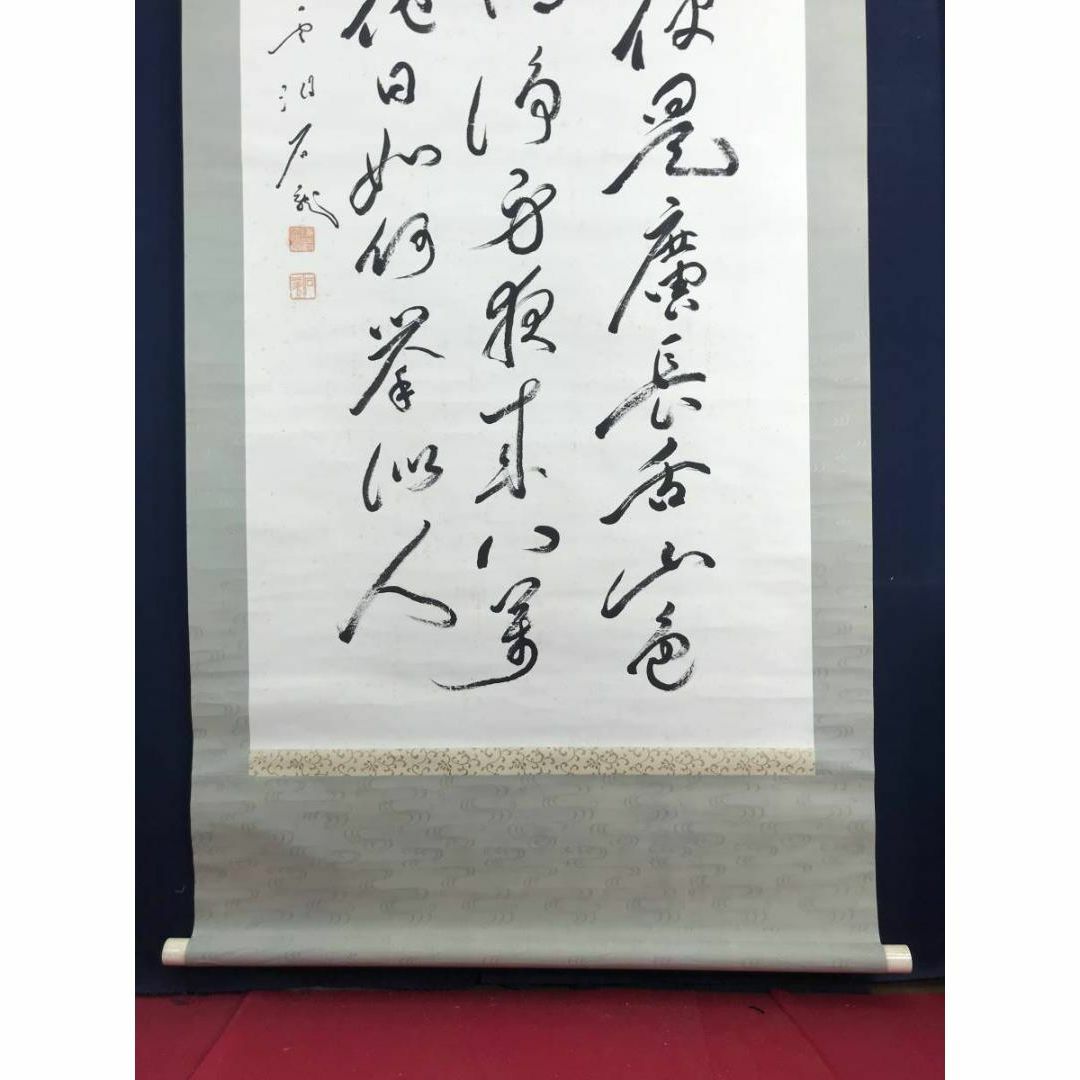 便是廣長舌山色
清淨身夜來八萬
他日如何舉似人
石龍